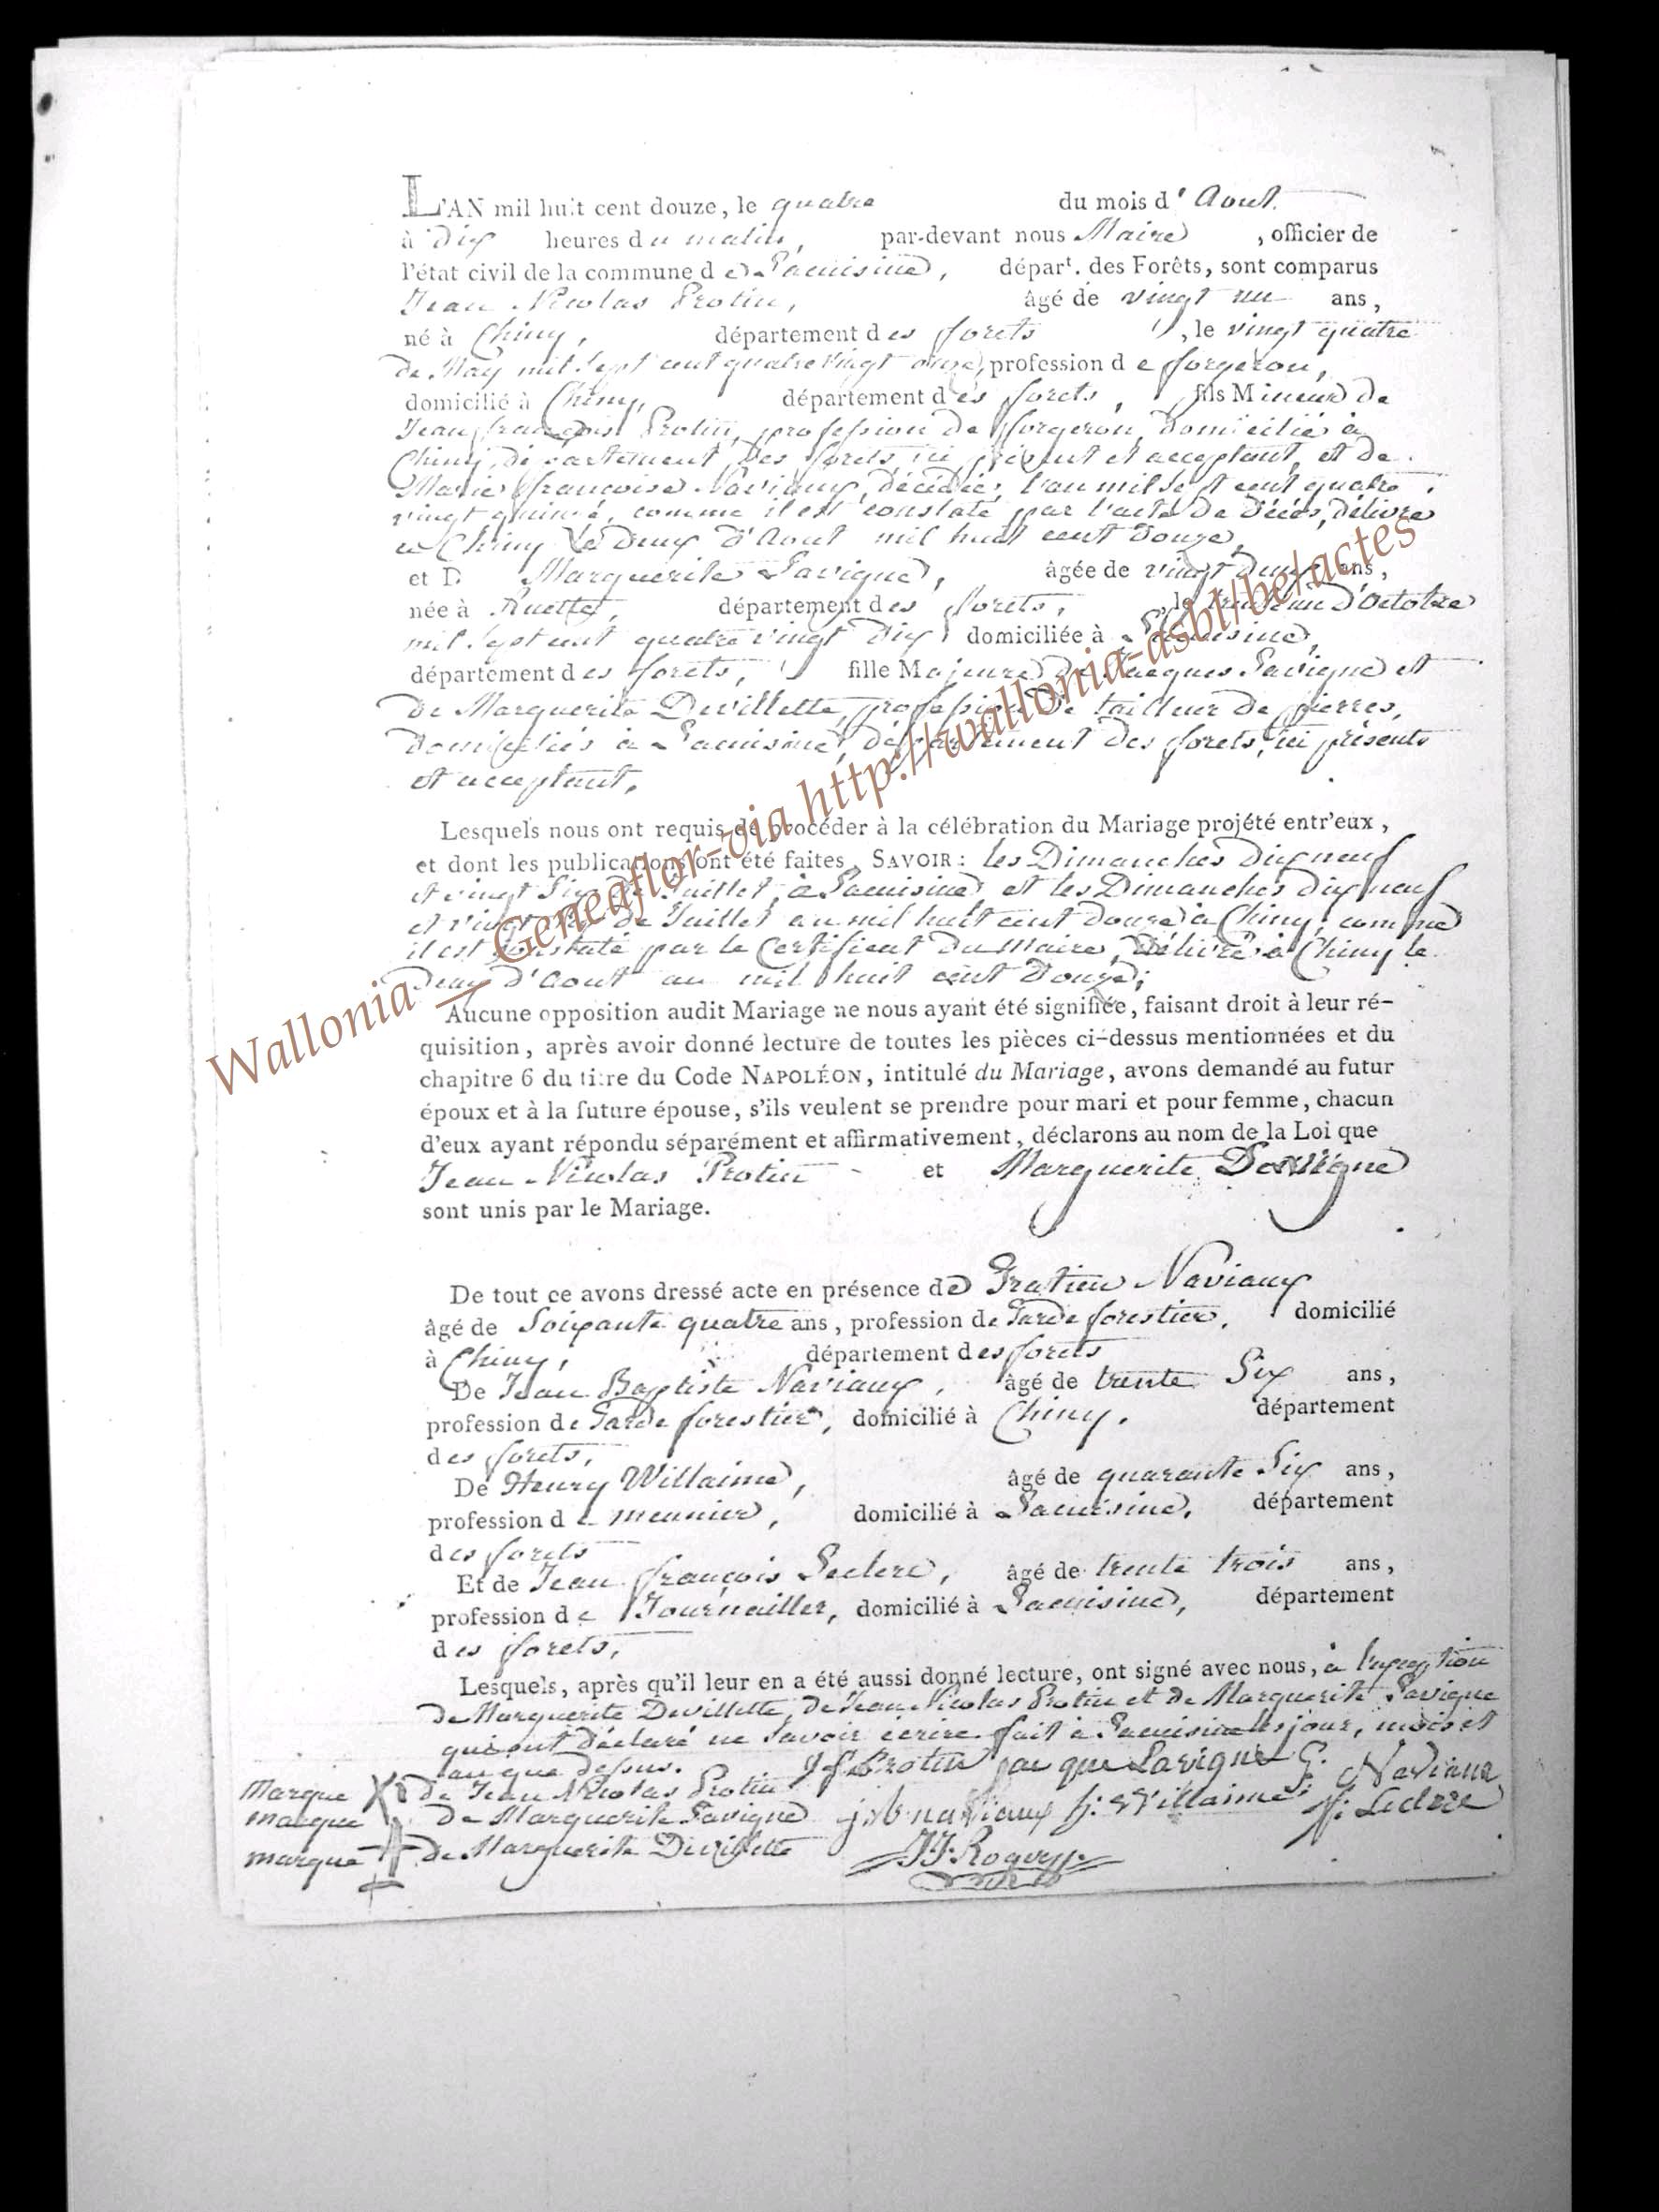 L'AN mil huit cent douze, le quatre du mois d'Aout.
à dix heures du matin, par-devant nous Maire, officier de
l'état civil de la commune de Lacuisine, départ. des Forêts, sont comparus
Jean Nicolas Protin, âgé de vingt un ans,
né à Chiny, département des forets, le vingt quatre
de May mil sept cent quatre vingt onze, profession de forgeron,
domicilié à Chiny, département des forets, fils Mineur de
Jean françois Protin, profession de forgeron, domicilié à
Chiny, departement des forets, ici présent et acceptant, et de
Marie françoise Naviaux, décédée, l'an mil sept cent quatre
vingt quinze, comme il est constaté par l'acte de décès, délivré
a Chiny le deux d'Aout mil huit cent douze,
et D Marguerite Lavigne, âgée de vingt deux ans,
née à Ruette, département des forets, le trente un d'Octobre
mil sept cent quatre vingt dix domiciliée à Lacuisine,
département des forets, fille Majeure de Jacques Lavigne et
de Marguerite Devillette, profession de tailleur de pierres,
domiciliés à Lacuisine, département des forets, ici présents
et acceptant.
Lesquels nous ont requis de procéder à la célébration du Mariage projété entr'eux,
et dont les publications ont été faites, SAVOIR: les Dimanches dix neuf
et vingt six de Juillet, à Lacuisine, et les Dimanches dix neuf
et vingt six de Juillet an mil huit cent douze à Chiny, comme
il est constaté par le Certificat du maire, Délivré à Chiny le
deux d'aout an mil huit cent douze;
Aucune opposition audit Mariage ne nous ayant été signifiée, faisant droit à leur ré-
quisition, après avoir donné lecture de toutes les pièces ci-dessus mentionnées et du
chapitre 6 du titre du Code NAPOLÉON, intitulé du Mariage, avons demandé au futur
époux et à la future épouse, s'ils veulent se prendre pour mari et pour femme, chacun
d'eux ayant répondu séparément et affirmativement, déclarons au nom de la Loi que
Jean Nicolas Protin et Marguerite
sont unis par le Mariage.
De tout ce avons dressé acte en présence de Gratien Naviaux
âgé de Soixante quatre ans, profession de Garde forestier, domicilié
à Chiny, département des forets
De Jean Baptiste Naviaux, âgé de trente Six ans,
profession de Garde forestier, domicilié à Chiny, département
des forets,
De Henry Willaime, âgé de quarante Six ans,
profession de meunier, domicilié à Lacuisine, département
des forets
Et de Jean françois Leclerc, âgé de trente trois ans,
profession de Journailler, domicilié à Lacuisine, département
des forets,
Lesquels, après qu'il leur en a été aussi donné lecture, ont signé avec nous, à l'exception
de Marguerite Devillette, de Jean Nicolas Protin et de Marguerite Lavigne
qui ont déclaré ne Savoir écrire fait à Lacuisine les jour, mois et
an que dessus. J f Protin jacque Lavigne G. Naviaux
Marque de Jean Nicolas Protin
marque de Marguerite Lavigne j. b. naviaux h: Willaime Leclere
marque de Marguerite Devillette
Wallonia – Geneaflor-via http://wallonia-asbl/be/actes